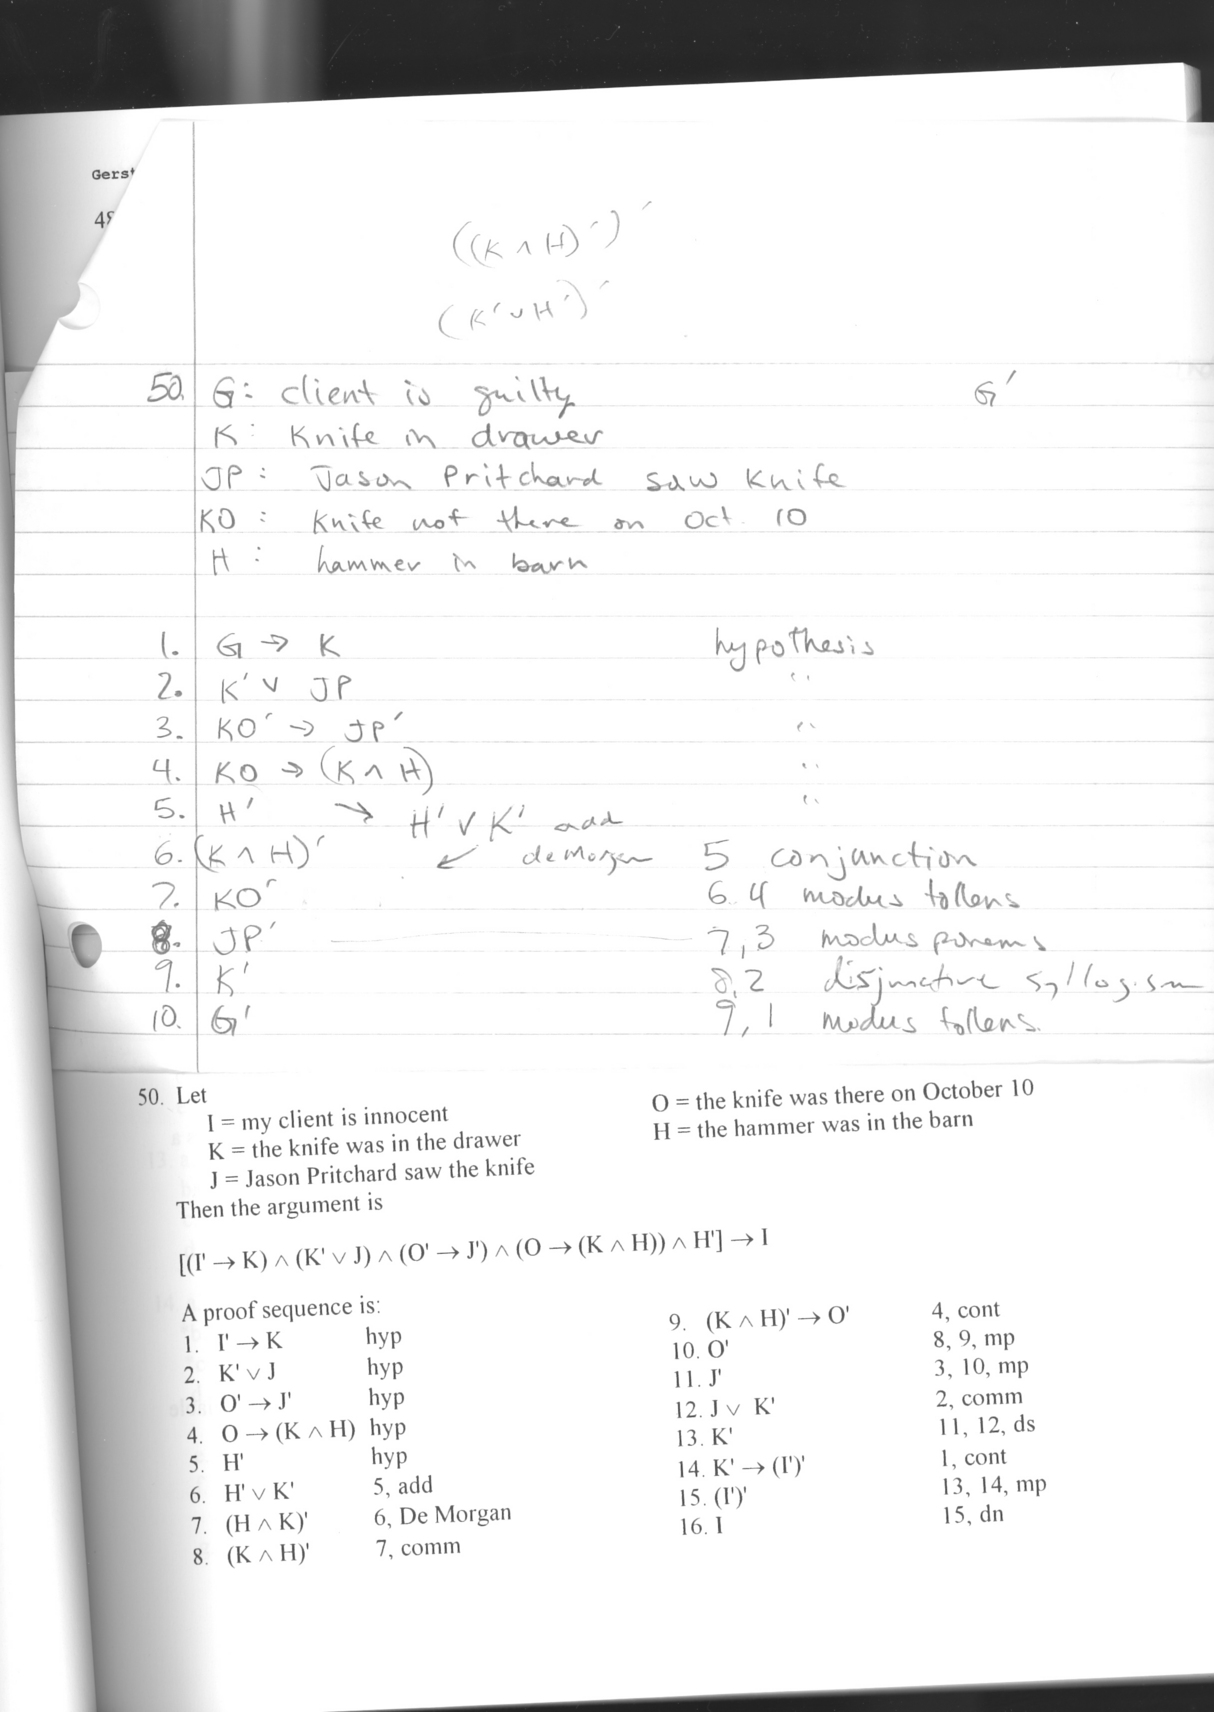 Gerst
48
((K ∧ H)′)′
(K′ ∨ H′)′
50. G: client is guilty G′
K: Knife in drawer
JP: Jason Pritchard saw knife
KO: Knife not there on Oct. 10
H: hammer in barn
1. G → K hypothesis
2. K′ ∨ JP "
3. KO′ → JP′ "
4. KO → (K ∧ H) "
5. H′ → H′ ∨ K′ add "
6. (K ∧ H)′ ↙ deMorgan 5 conjunction
7. KO′ 6. 4 modus tollens
8. JP′ 7,3 modus ponens
9. K′ 8,2 disjunctive syllogism
10. G′ 9,1 modus tollens.
50. Let
I = my client is innocent O = the knife was there on October 10
K = the knife was in the drawer H = the hammer was in the barn
J = Jason Pritchard saw the knife
Then the argument is
[(I' → K) ∧ (K' ∨ J) ∧ (O' → J') ∧ (O → (K ∧ H)) ∧ H'] → I
A proof sequence is:
1. I' → K hyp
2. K' ∨ J hyp
3. O' → J' hyp
4. O → (K ∧ H) hyp
5. H' hyp
6. H' ∨ K' 5, add
7. (H ∧ K)' 6, De Morgan
8. (K ∧ H)' 7, comm
9. (K ∧ H)' → O' 4, cont
10. O' 8, 9, mp
11. J' 3, 10, mp
12. J ∨ K' 2, comm
13. K' 11, 12, ds
14. K' → (I')' 1, cont
15. (I')' 13, 14, mp
16. I 15, dn